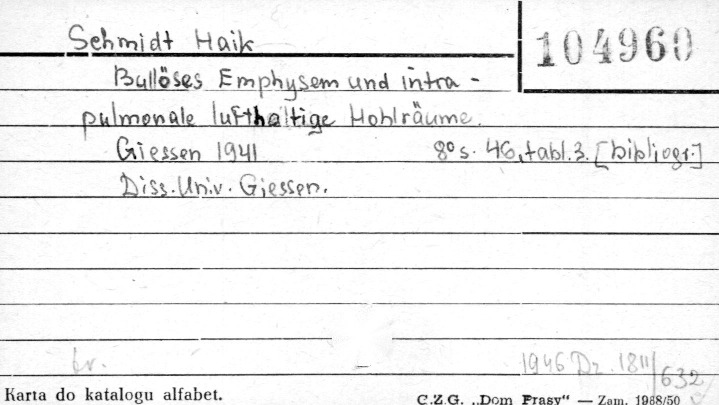 Schmidt Haik
104960
Bullöses Emphysem und intra-
pulmonale lufthaltige Hohlräume.
Giessen 1941 8° s. 46, tabl. 3. [bibliogr.]
Diss. Univ. Giessen.
1946 Dz. 1811/632
Karta do katalogu alfabet.
C.Z.G. „Dom Prasy" — Zam. 1968/50